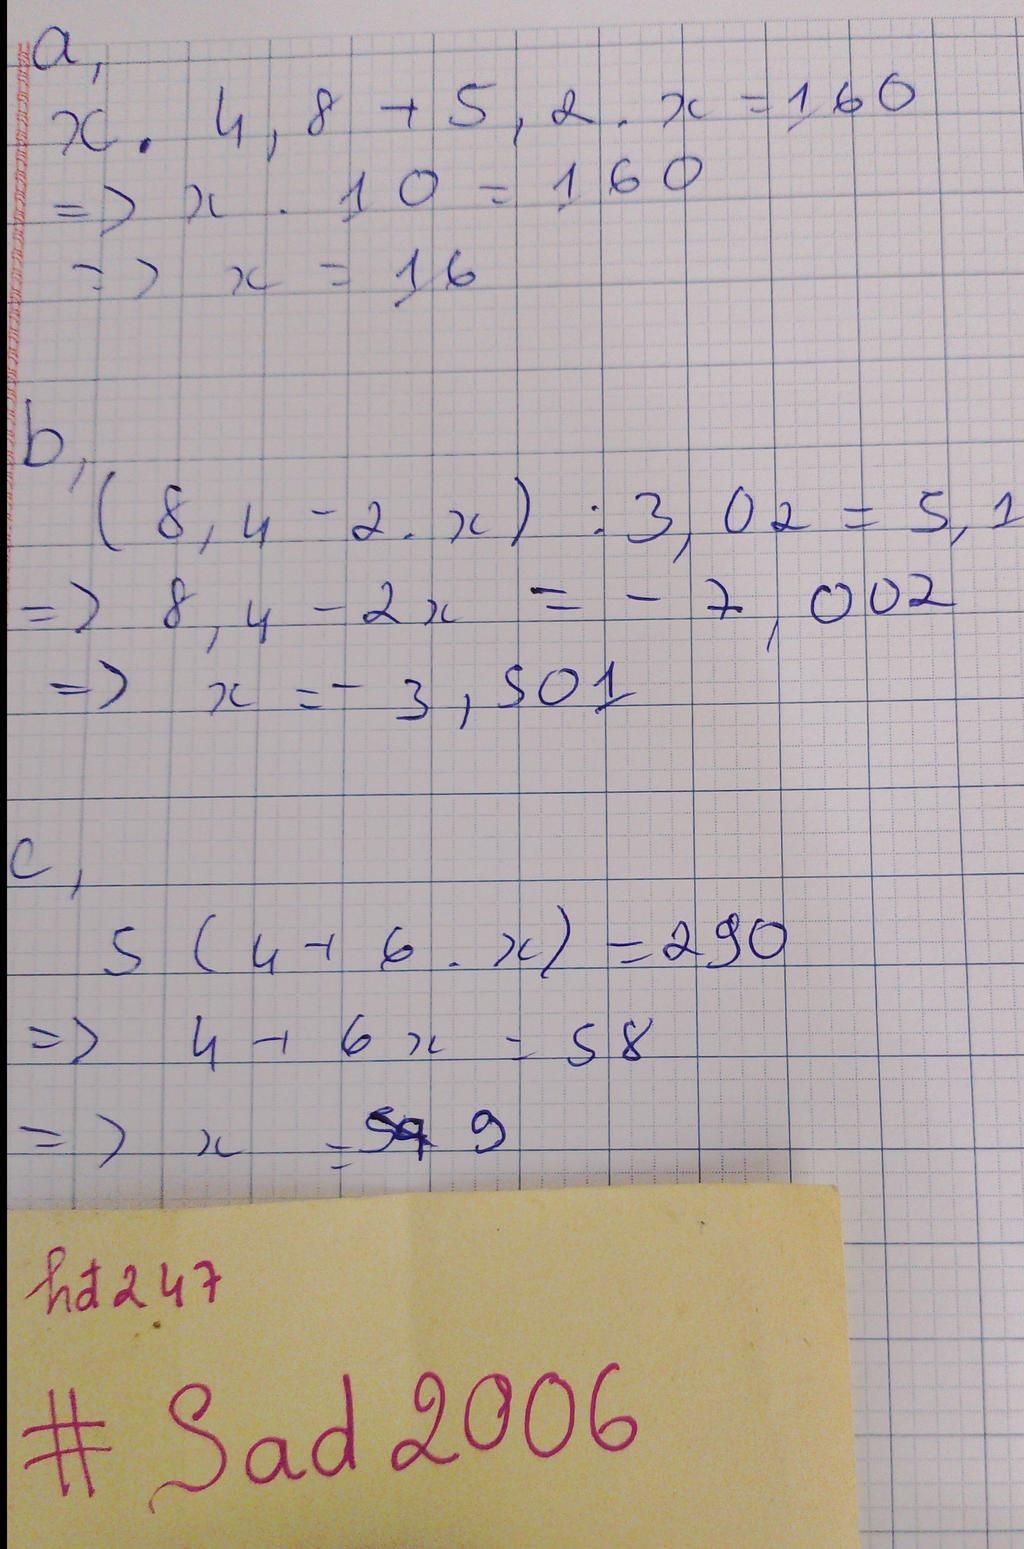 a,
x. 4,8 + 5,2. x = 160
=> x . 10 = 160
=> x = 16
b,
(8,4 - 2. x) : 3,02 = 5,1
=> 8,4 - 2x = - 7,002
=> x = - 3,501
c,
5 (4 + 6 . x) = 290
=> 4 + 6x = 58
=> x = 9
hđ247
# Sad 2006